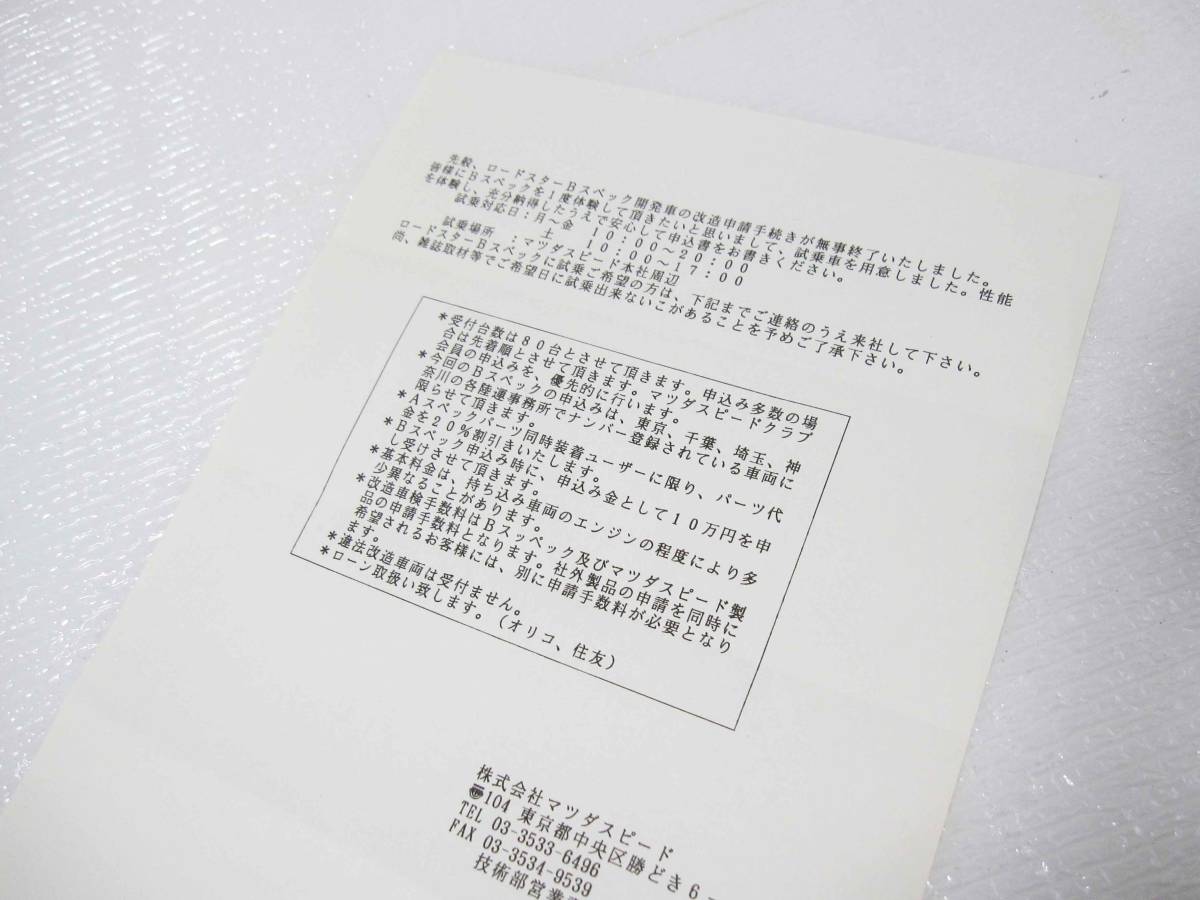 先般、ロードスターBスペック開発車の改造申請手続きが無事終了いたしました。
皆様にBスペックを1度体験して頂きたいと思いまして、試乗車を用意しました。性能
を体験し、充分納得したうえで安心して申込書をお書きください。
試乗対応日:月〜金 10:00〜20:00
土 10:00〜17:00
試乗場所 :マツダスピード本社周辺
ロードスターBスペックに試乗ご希望の方は、下記までご連絡のうえ来社して下さい。
尚、雑誌取材等でご希望日に試乗出来ないこがあることを予めご了承下さい。
*受付台数は80台とさせて頂きます。申込み多数の場
合は先着順とさせて頂きます。マツダスピードクラブ
会員の申込みを、優先的に行います。
*今回のBスペックの申込みは、東京、千葉、埼玉、神
奈川の各陸運事務所でナンバー登録されている車両に
限らせて頂きます。
*Aスペックパーツ同時装着ユーザーに限り、パーツ代
金を20%割引きいたします。
*Bスペック申込み時に、申込み金として10万円を申
し受けさせて頂きます。
*基本料金は、持ち込み車両のエンジンの程度により多
少異なることがあります。
*改造車検手数料はBスッペック及びマツダスピード製
品の申請手数料となります。社外製品の申請を同時に
希望されるお客様には、別に申請手数料が必要となり
ます。
*違法改造車両は受付ません。
*ローン取扱い致します。(オリコ、住友)
株式会社マツダスピード
〒104 東京都中央区勝どき6-
TEL 03-3533-6496
FAX 03-3534-9539
技術部営業